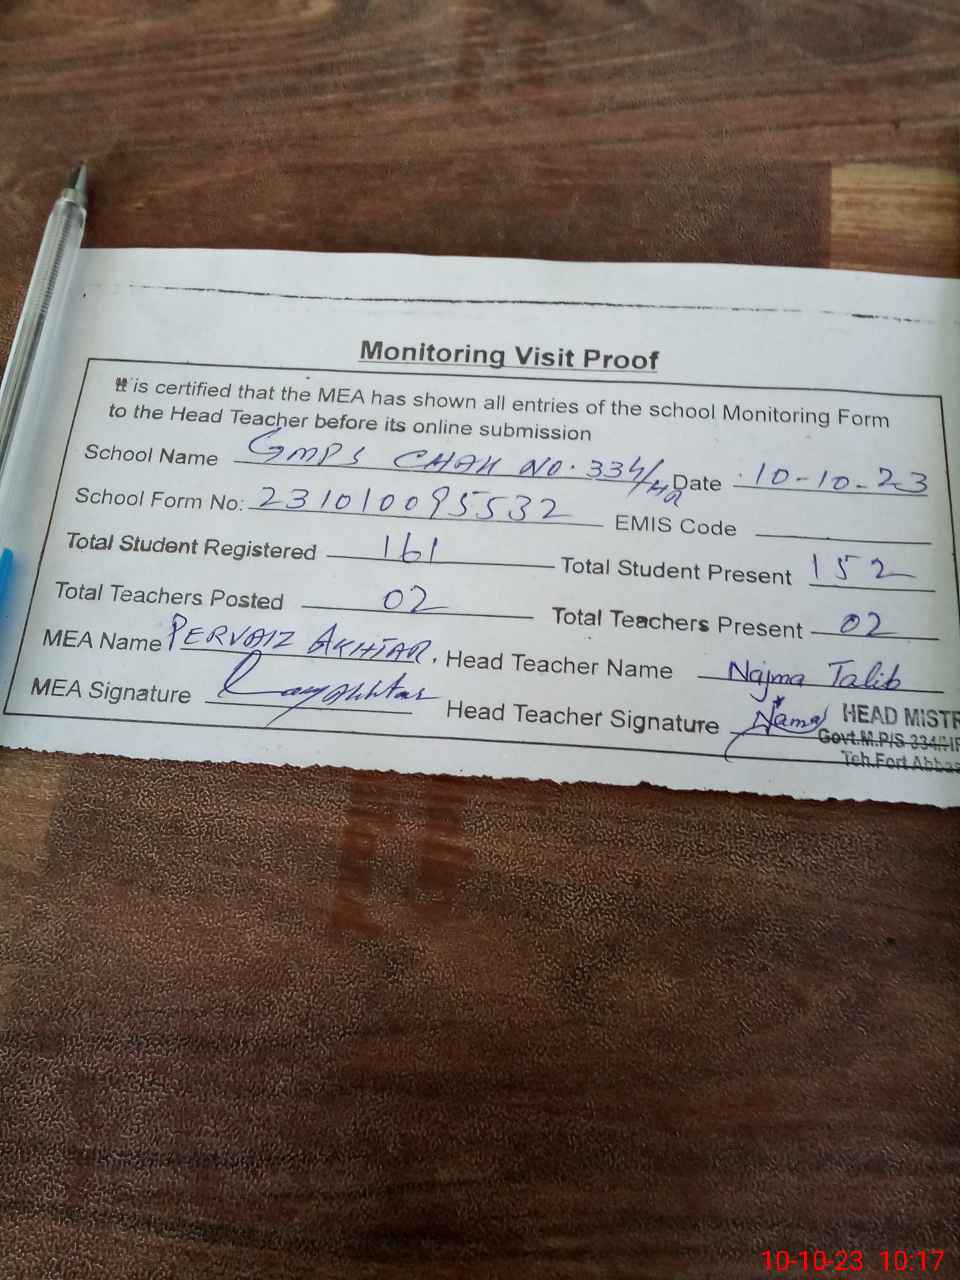 Monitoring Visit Proof
It is certified that the MEA has shown all entries of the school Monitoring Form
to the Head Teacher before its online submission
School Name GMPS CHAK NO. 334/HR Date 10-10-23
School Form No: 231010095532 EMIS Code
Total Student Registered 161 Total Student Present 152
Total Teachers Posted 02 Total Teachers Present 02
MEA Name PERVAIZ AKHTAR. Head Teacher Name Najma Talib
MEA Signature Head Teacher Signature Najma HEAD MISTR
Govt.M.P/S 334/HR
Teh.Fort Abbas
10-10-23 10:17